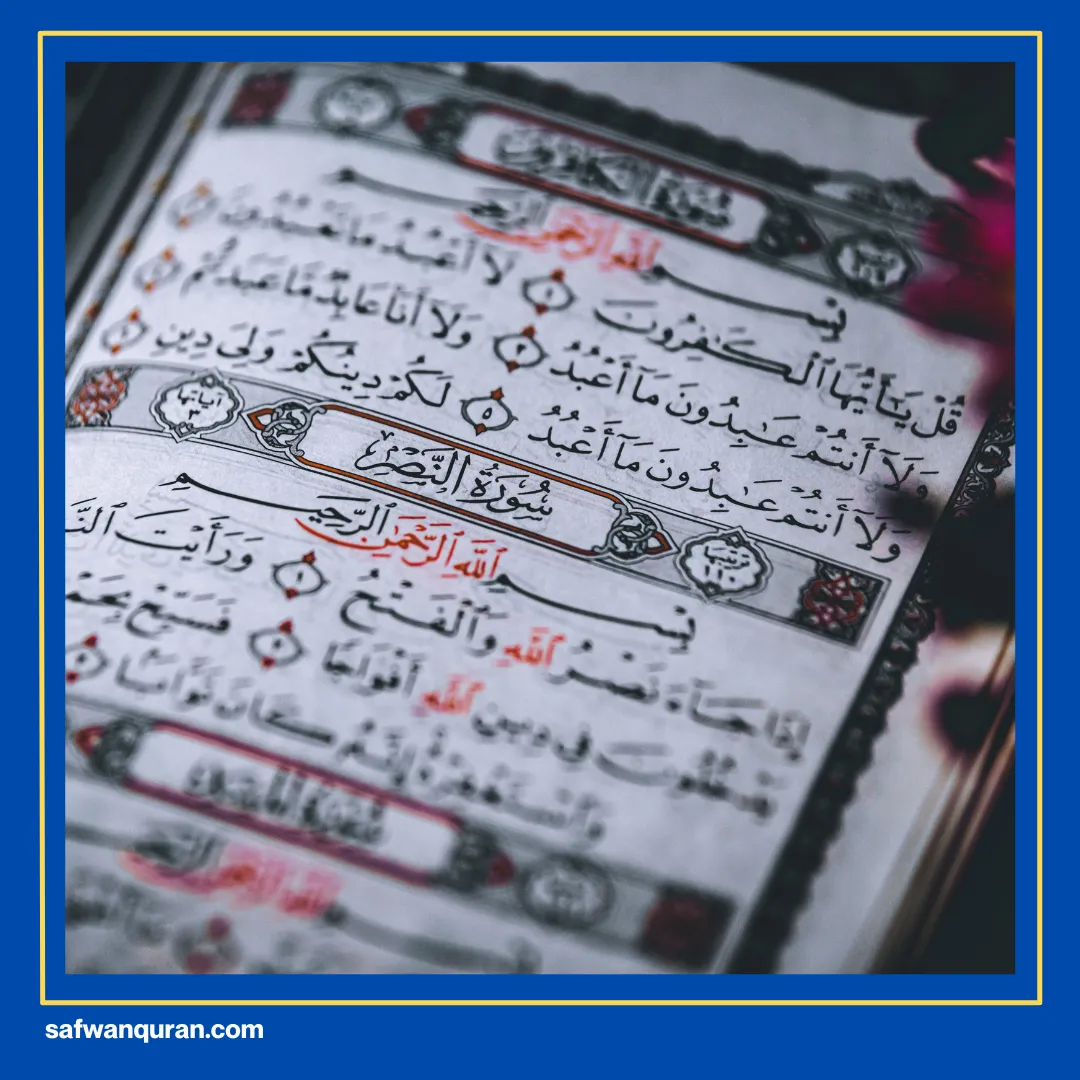 سُورَةُ الكَافِرُونَ
بِسْمِ ٱللَّهِ ٱلرَّحْمَٰنِ ٱلرَّحِيمِ
قُلْ يَٰٓأَيُّهَا ٱلْكَٰفِرُونَ ١ لَآ أَعْبُدُ مَا تَعْبُدُونَ ٢
وَلَآ أَنتُمْ عَٰبِدُونَ مَآ أَعْبُدُ ٣ وَلَآ أَنَا۠ عَابِدٌ مَّا عَبَدتُّمْ ٤
وَلَآ أَنتُمْ عَٰبِدُونَ مَآ أَعْبُدُ ٥ لَكُمْ دِينُكُمْ وَلِيَ دِينِ ٦
ترتيبها ١١٠ سُورَةُ النَّصْرِ آياتها ٣
بِسْمِ ٱللَّهِ ٱلرَّحْمَٰنِ ٱلرَّحِيمِ
إِذَا جَآءَ نَصْرُ ٱللَّهِ وَٱلْفَتْحُ ١ وَرَأَيْتَ
يَدْخُلُونَ فِي دِينِ ٱللَّهِ أَفْوَاجًا ٢ فَسَبِّحْ
وَٱسْتَغْفِرْهُ إِنَّهُ كَانَ تَوَّابًا ٣
safwanquran.com